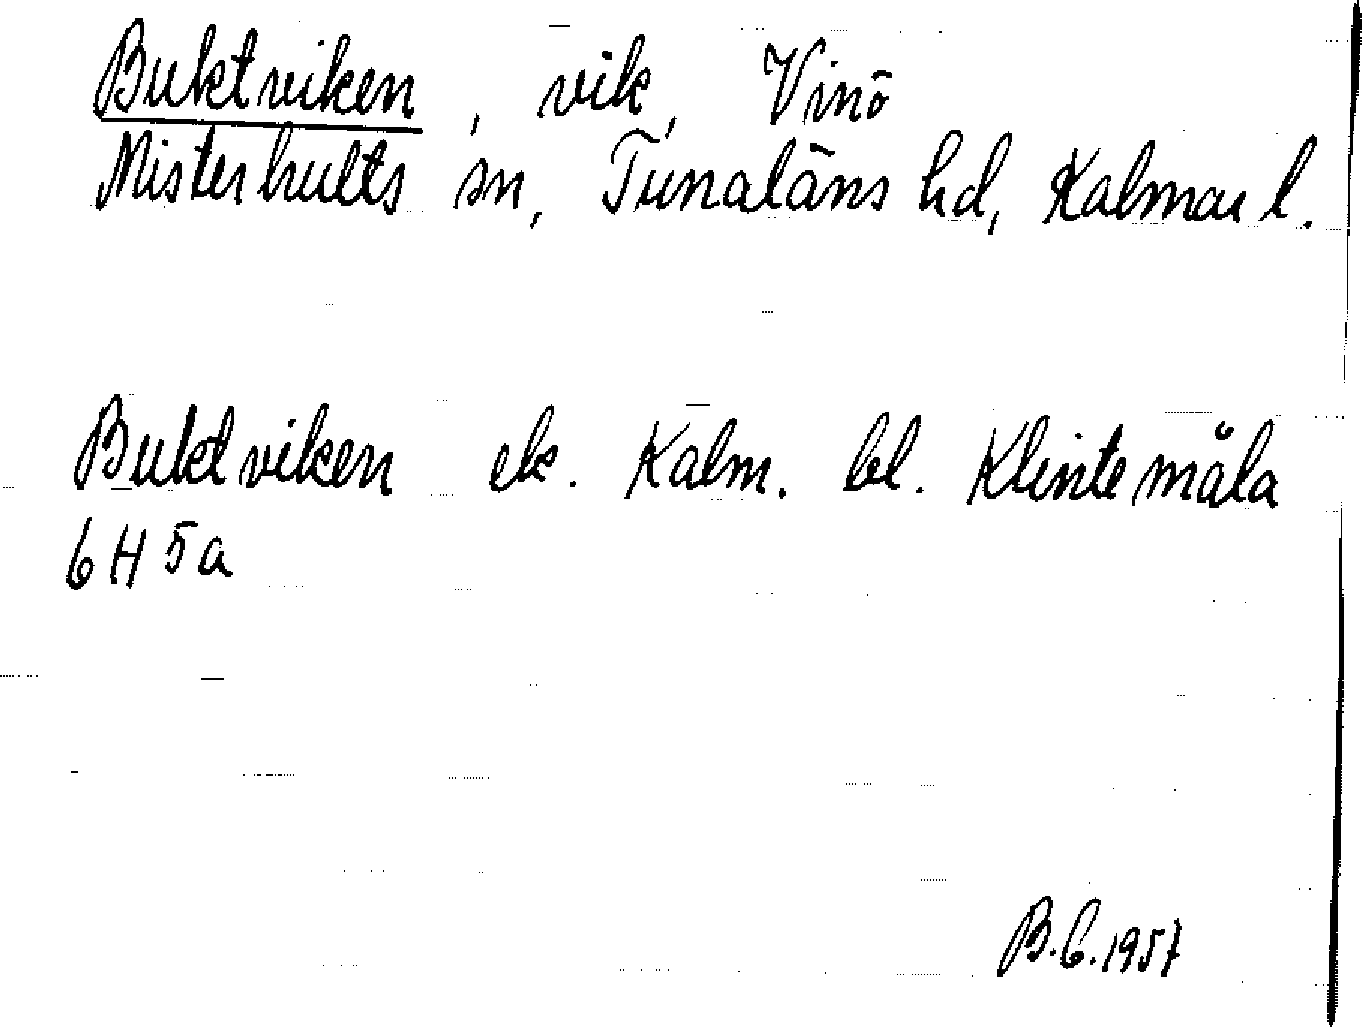 Buktviken, vik, Vinö
Misterhults sn, Tunaläns hd, Kalmar l.
Buktviken ek. Kalm. bl. Klintemåla
6H5a
B.C.1957